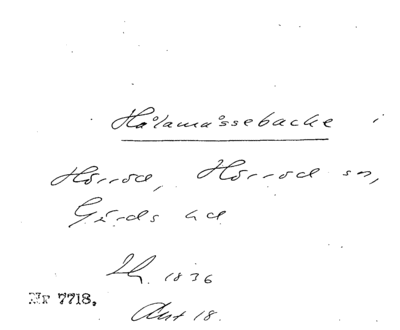 Hålamåssebacke i
Hörröd, Hörröd sn,
Gärds hd
Th. 1836
Nr 7718.
Akt 18.